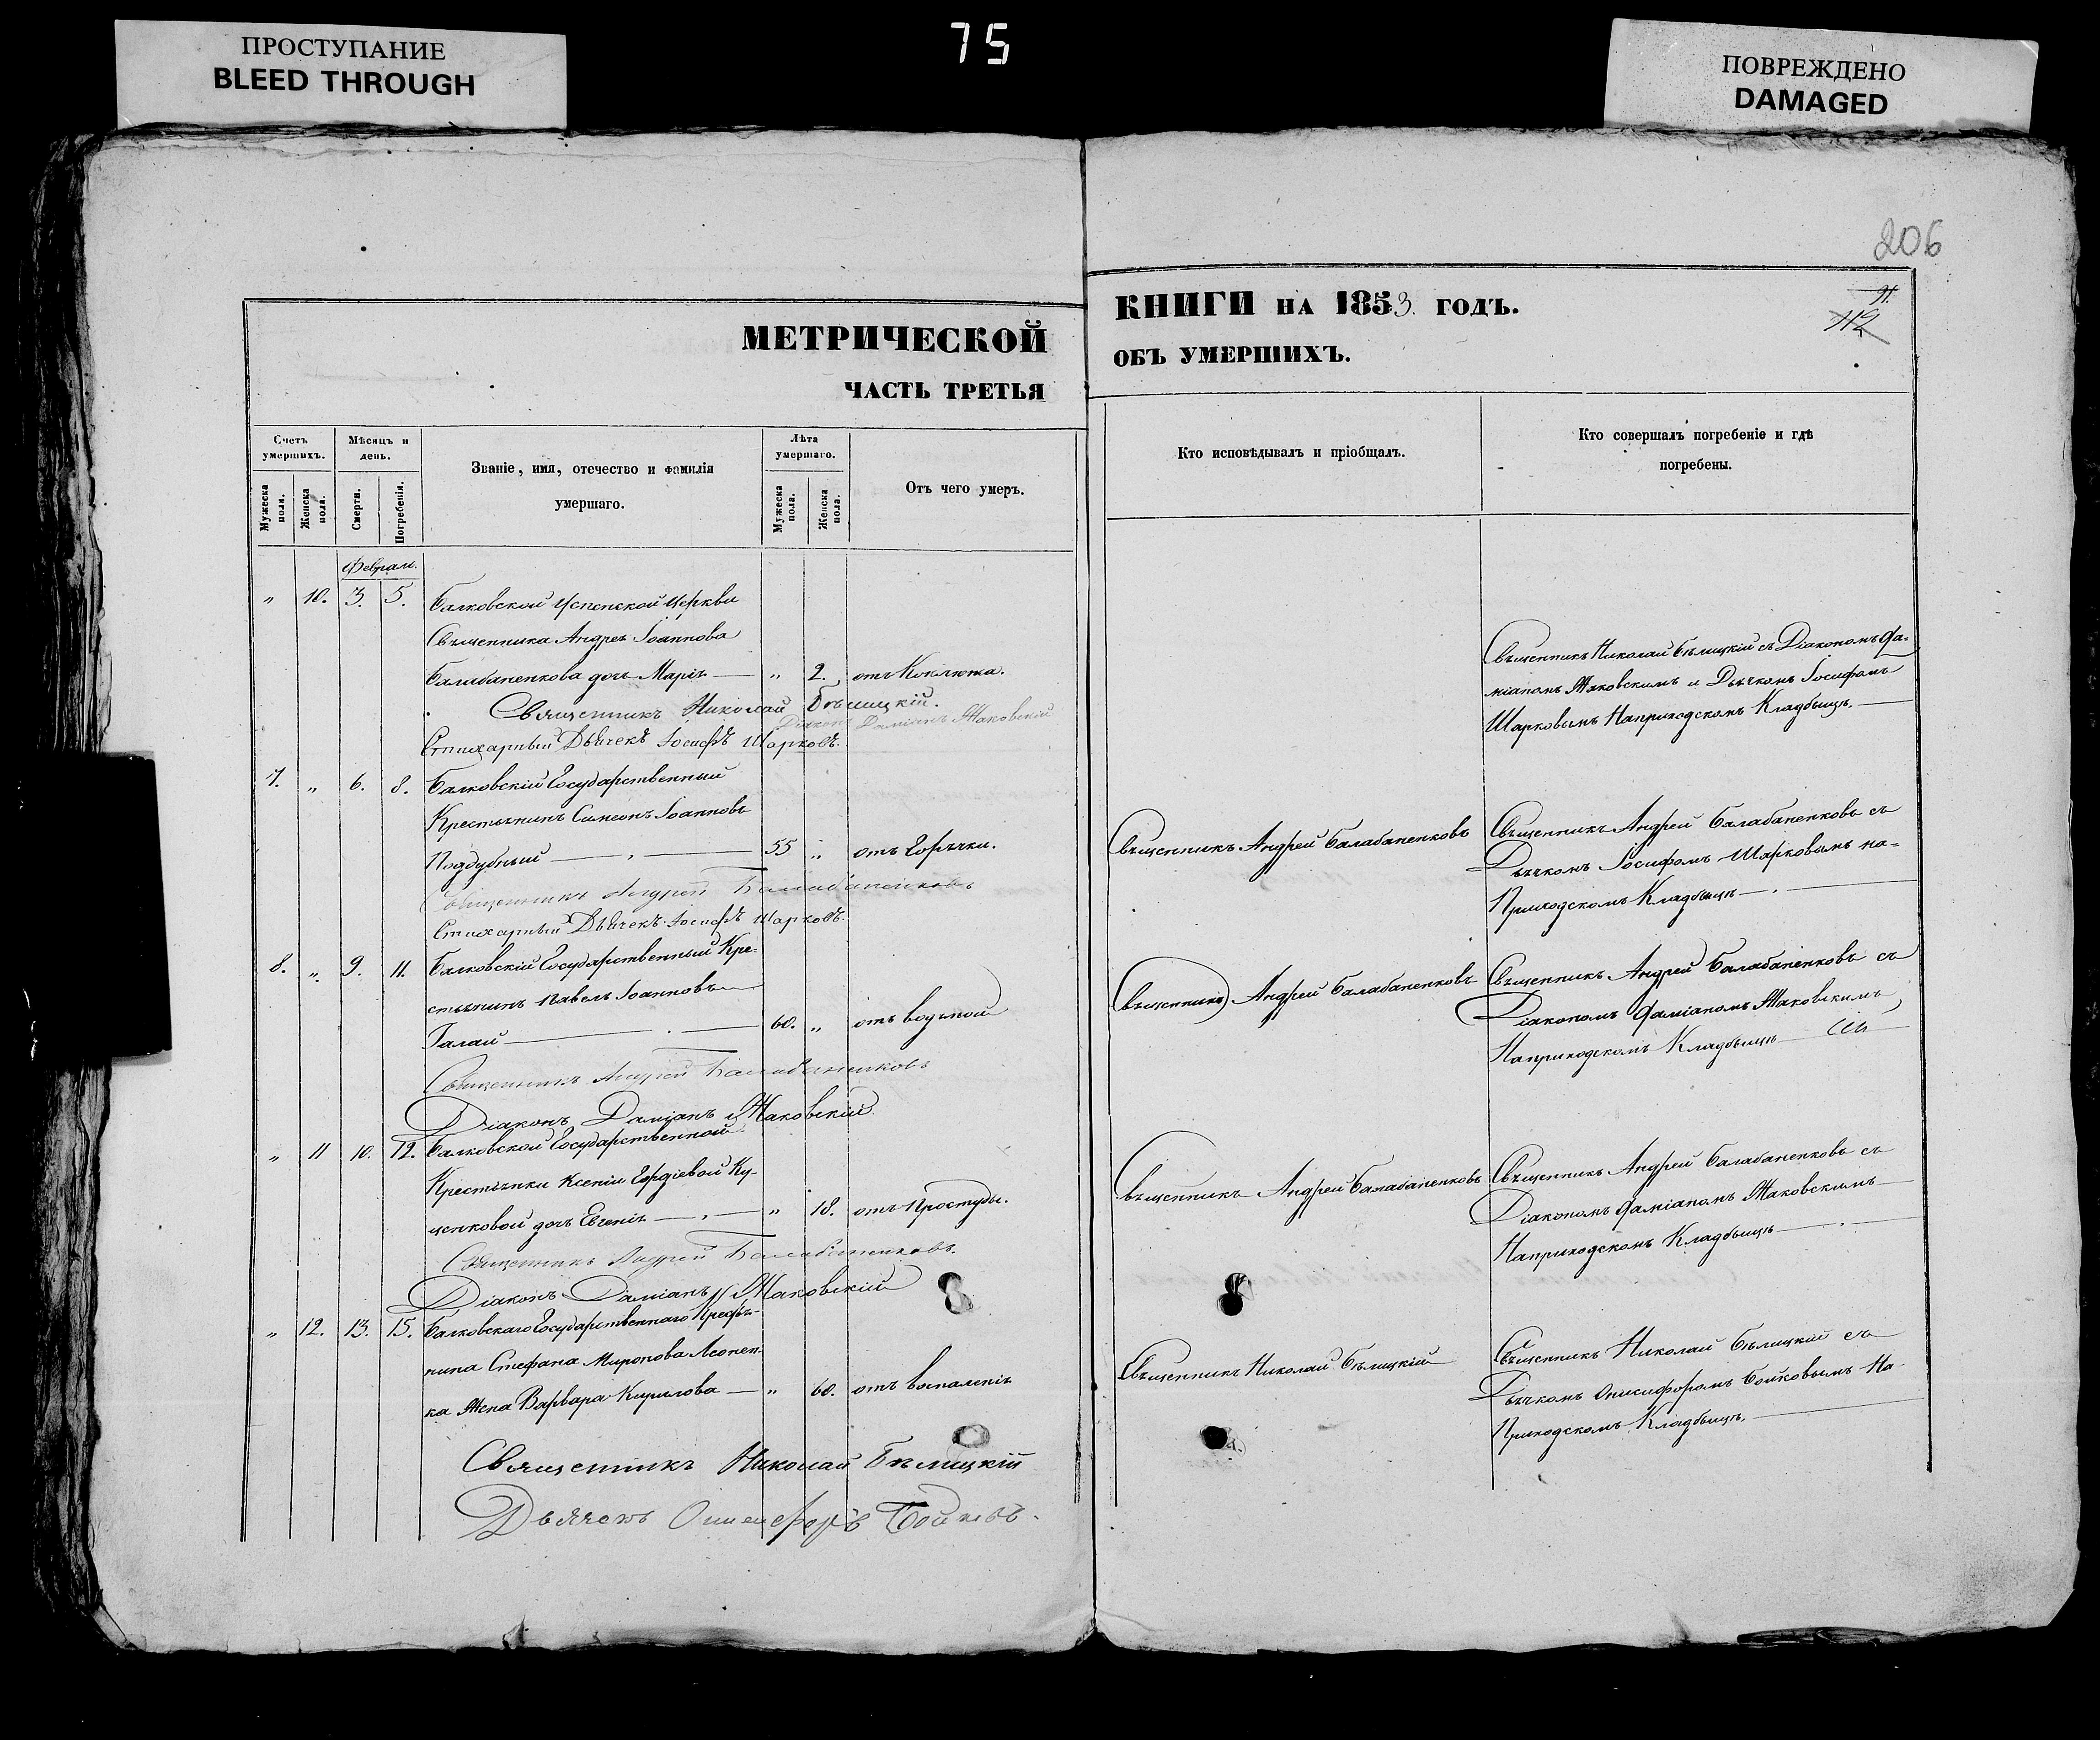 ПРОСТУПАНИЕ
BLEED THROUGH
75
ПОВРЕЖДЕНО
DAMAGED
206
МЕТРИЧЕСКОЙ
ЧАСТЬ ТРЕТЬЯ
КНИГИ НА 1853. ГОДЪ.
ОБЪ УМЕРШИХЪ.
91.
112
Счетъ умершихъ.
Мужеска пола.
Женска пола.
Мѣсяцъ и день.
Смерти.
Погребенія.
Званіе, имя, отечество и фамилія умершаго.
Лѣта умершаго.
Мужеска пола.
Женска пола.
Отъ чего умеръ.
Кто исповѣдывалъ и пріобщалъ.
Кто совершалъ погребеніе и гдѣ погребены.
Феврал.
" 10. 3. 5. Балковской Успенской Церкви
Священника Андрея Іоаннова
Балабаненкова дочь Марія — " 2. отъ Коклюша.
Священникъ Николай Бѣлицкій съ Діакономъ Да-
міаномъ Маковскимъ и Дьячкомъ Іосифомъ
Шарковымъ На приходскомъ Кладбищѣ. —
Священникъ Николай Бѣлицкій.
Діаконъ Даміанъ Маковскій
Стихарный Дьячекъ Іосифъ Шарковъ.
7. " 6. 8. Балковскій Государственный
Крестьянинъ Симеонъ Іоанновъ
Поддубный — 55 " отъ Горячки.
Священникъ Андрей Балабаненковъ
Священникъ Андрей Балабаненковъ съ
Дьячкомъ Іосифомъ Шарковымъ на-
Приходскомъ Кладбищѣ —
Священникъ Андрей Балабаненковъ
Стихарный Дьячекъ Іосифъ Шарковъ.
8. " 9. 11. Балковскій Государственный Кре-
стьянинъ Павелъ Іоанновъ
Галай — 60. " отъ водяной
Священникъ Андрей Балабаненковъ
Священникъ Андрей Балабаненковъ съ
Діакономъ Даміаномъ Маковскимъ
На приходскомъ Кладбищѣ —
Священникъ Андрей Балабаненковъ
Діаконъ Даміанъ Маковскій
" 11 10. 12. Балковской Государственной
Крестьянки Ксеніи Гордіевой Ку-
ценковой дочь Евгенія — " 18. отъ Простуды.
Священникъ Андрей Балабаненковъ
Священникъ Андрей Балабаненковъ съ
Діакономъ Даміаномъ Маковскимъ
На приходскомъ Кладбищѣ —
Священникъ Андрей Балабаненковъ.
Діаконъ Даміанъ Маковскій
" 12. 13. 15. Балковскаго Государственнаго Крестья-
нина Стефана Миронова Леонен-
ка Жена Варвара Кирилова — " 60. отъ воспаленія
Священникъ Николай Бѣлицкій
Священникъ Николай Бѣлицкій съ
Дьячкомъ Онисифоромъ Бойковымъ На
Приходскомъ Кладбищѣ. —
Священникъ Николай Бѣлицкій
Дьячекъ Онисифоръ Бойковъ.